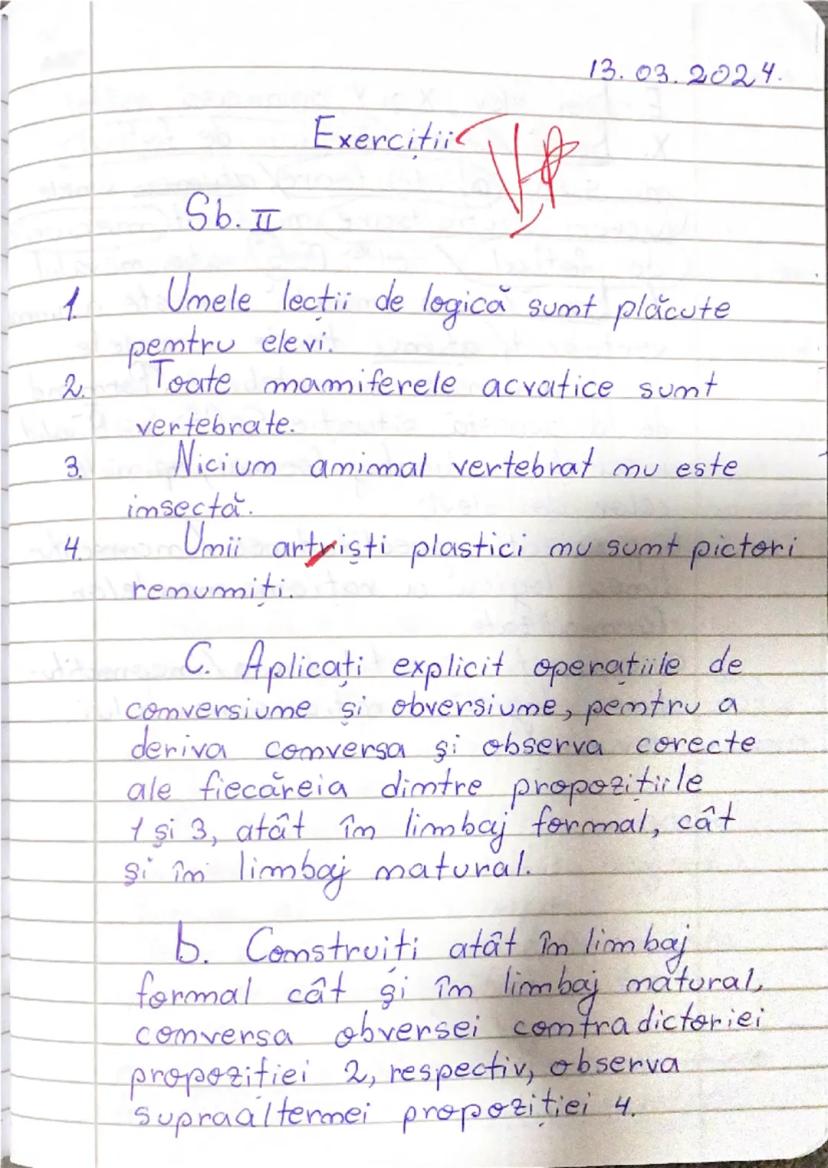 13.03.2024.
Exerciții
Sb. II
1. Unele lecții de logică sunt plăcute
pentru elevi.
2. Toate mamiferele acvatice sunt
vertebrate.
3. Niciun animal vertebrat nu este
insectă.
4. Unii artriști plastici nu sunt pictori
renumiți.
C. Aplicați explicit operațiile de
conversiune și obversiune, pentru a
deriva conversa și observa corecte
ale fiecăreia dintre propozițiile
1 și 3, atât în limbaj formal, cât
și în limbaj natural.
b. Construiți atât în limbaj
formal cât și în limbaj natural,
conversa obversei contradictoriei
propoziției 2, respectiv, observa
supraalternei propoziției 4.